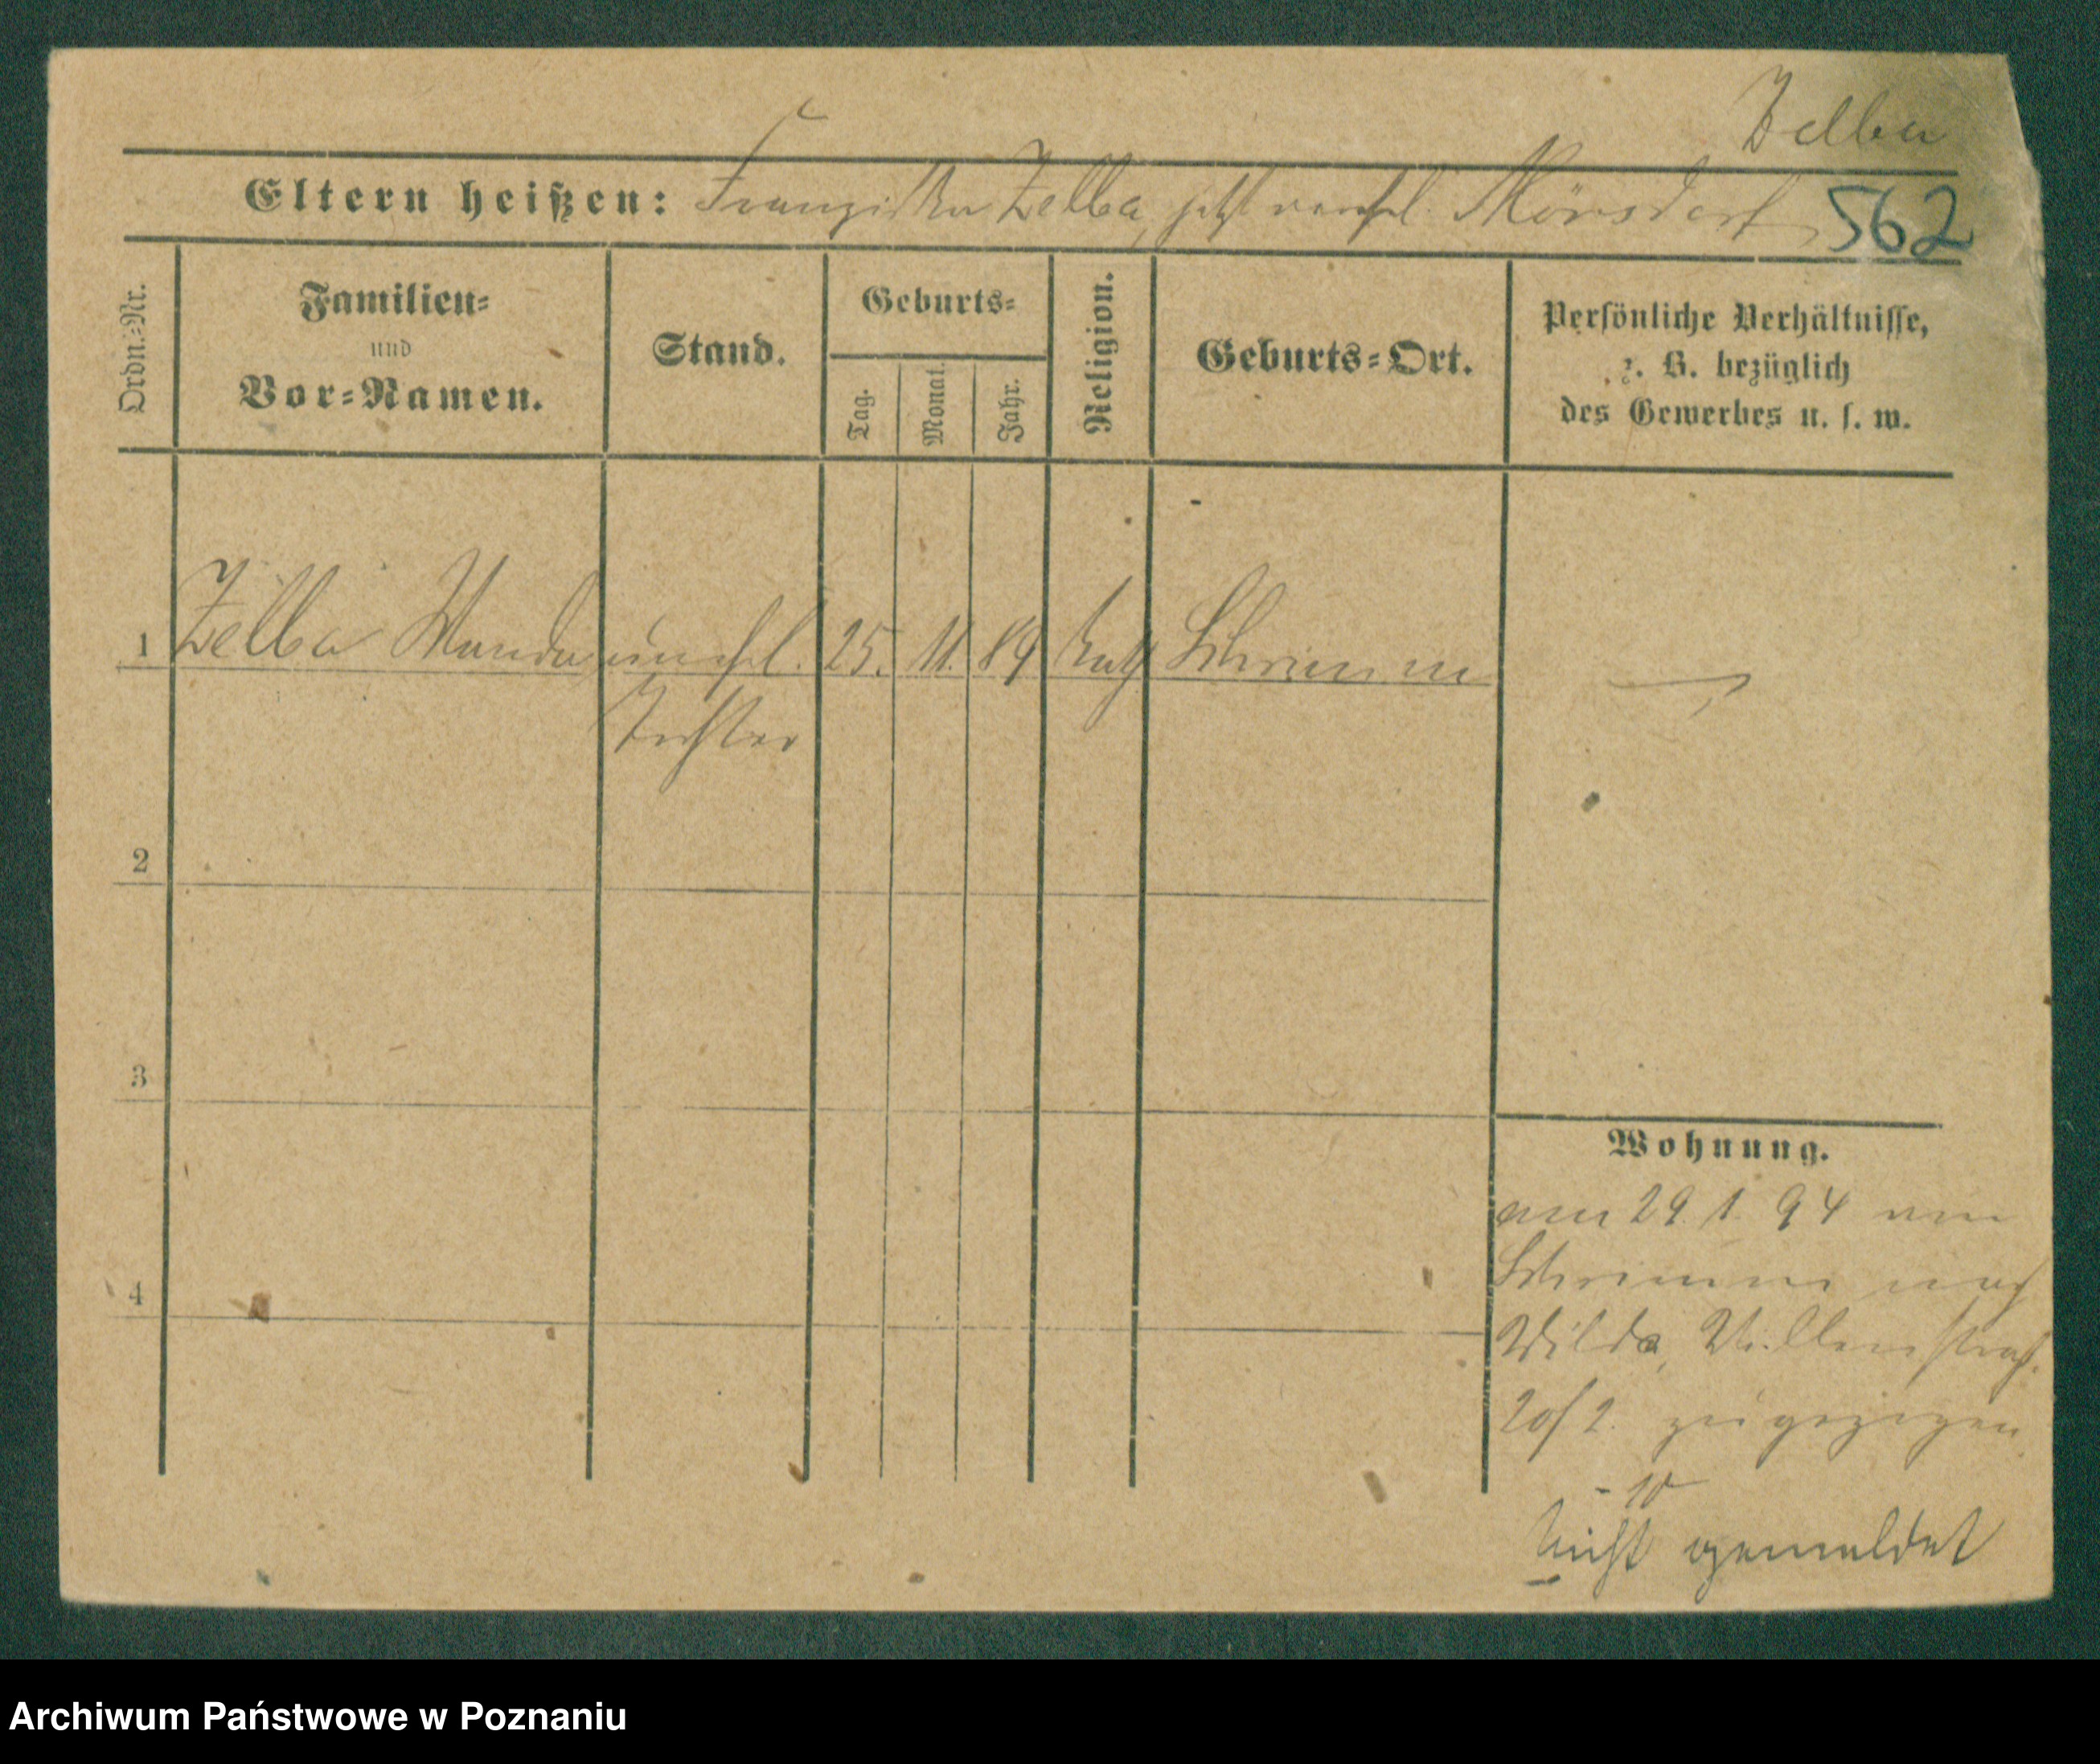 Zelba
Eltern heißen: Franziska Zelba, jetzt verehel. Mörsdorf
562
Ordn.-Nr.
Familien-
und
Vor-Namen.
Stand.
Geburts-
Tag.
Monat.
Jahr.
Religion.
Geburts-Ort.
Persönliche Verhältnisse,
z. B. bezüglich
des Gewerbes u. s. w.
1 Zelba Wanda unehel. 25. 11. 89 kath Schrimm
Tochter
2
3
4
Wohnung.
am 29. 1. 94 von
Schrimm nach
Wilda, Villenstraß.
zugezogen
Nicht gemeldet
Archiwum Państwowe w Poznaniu